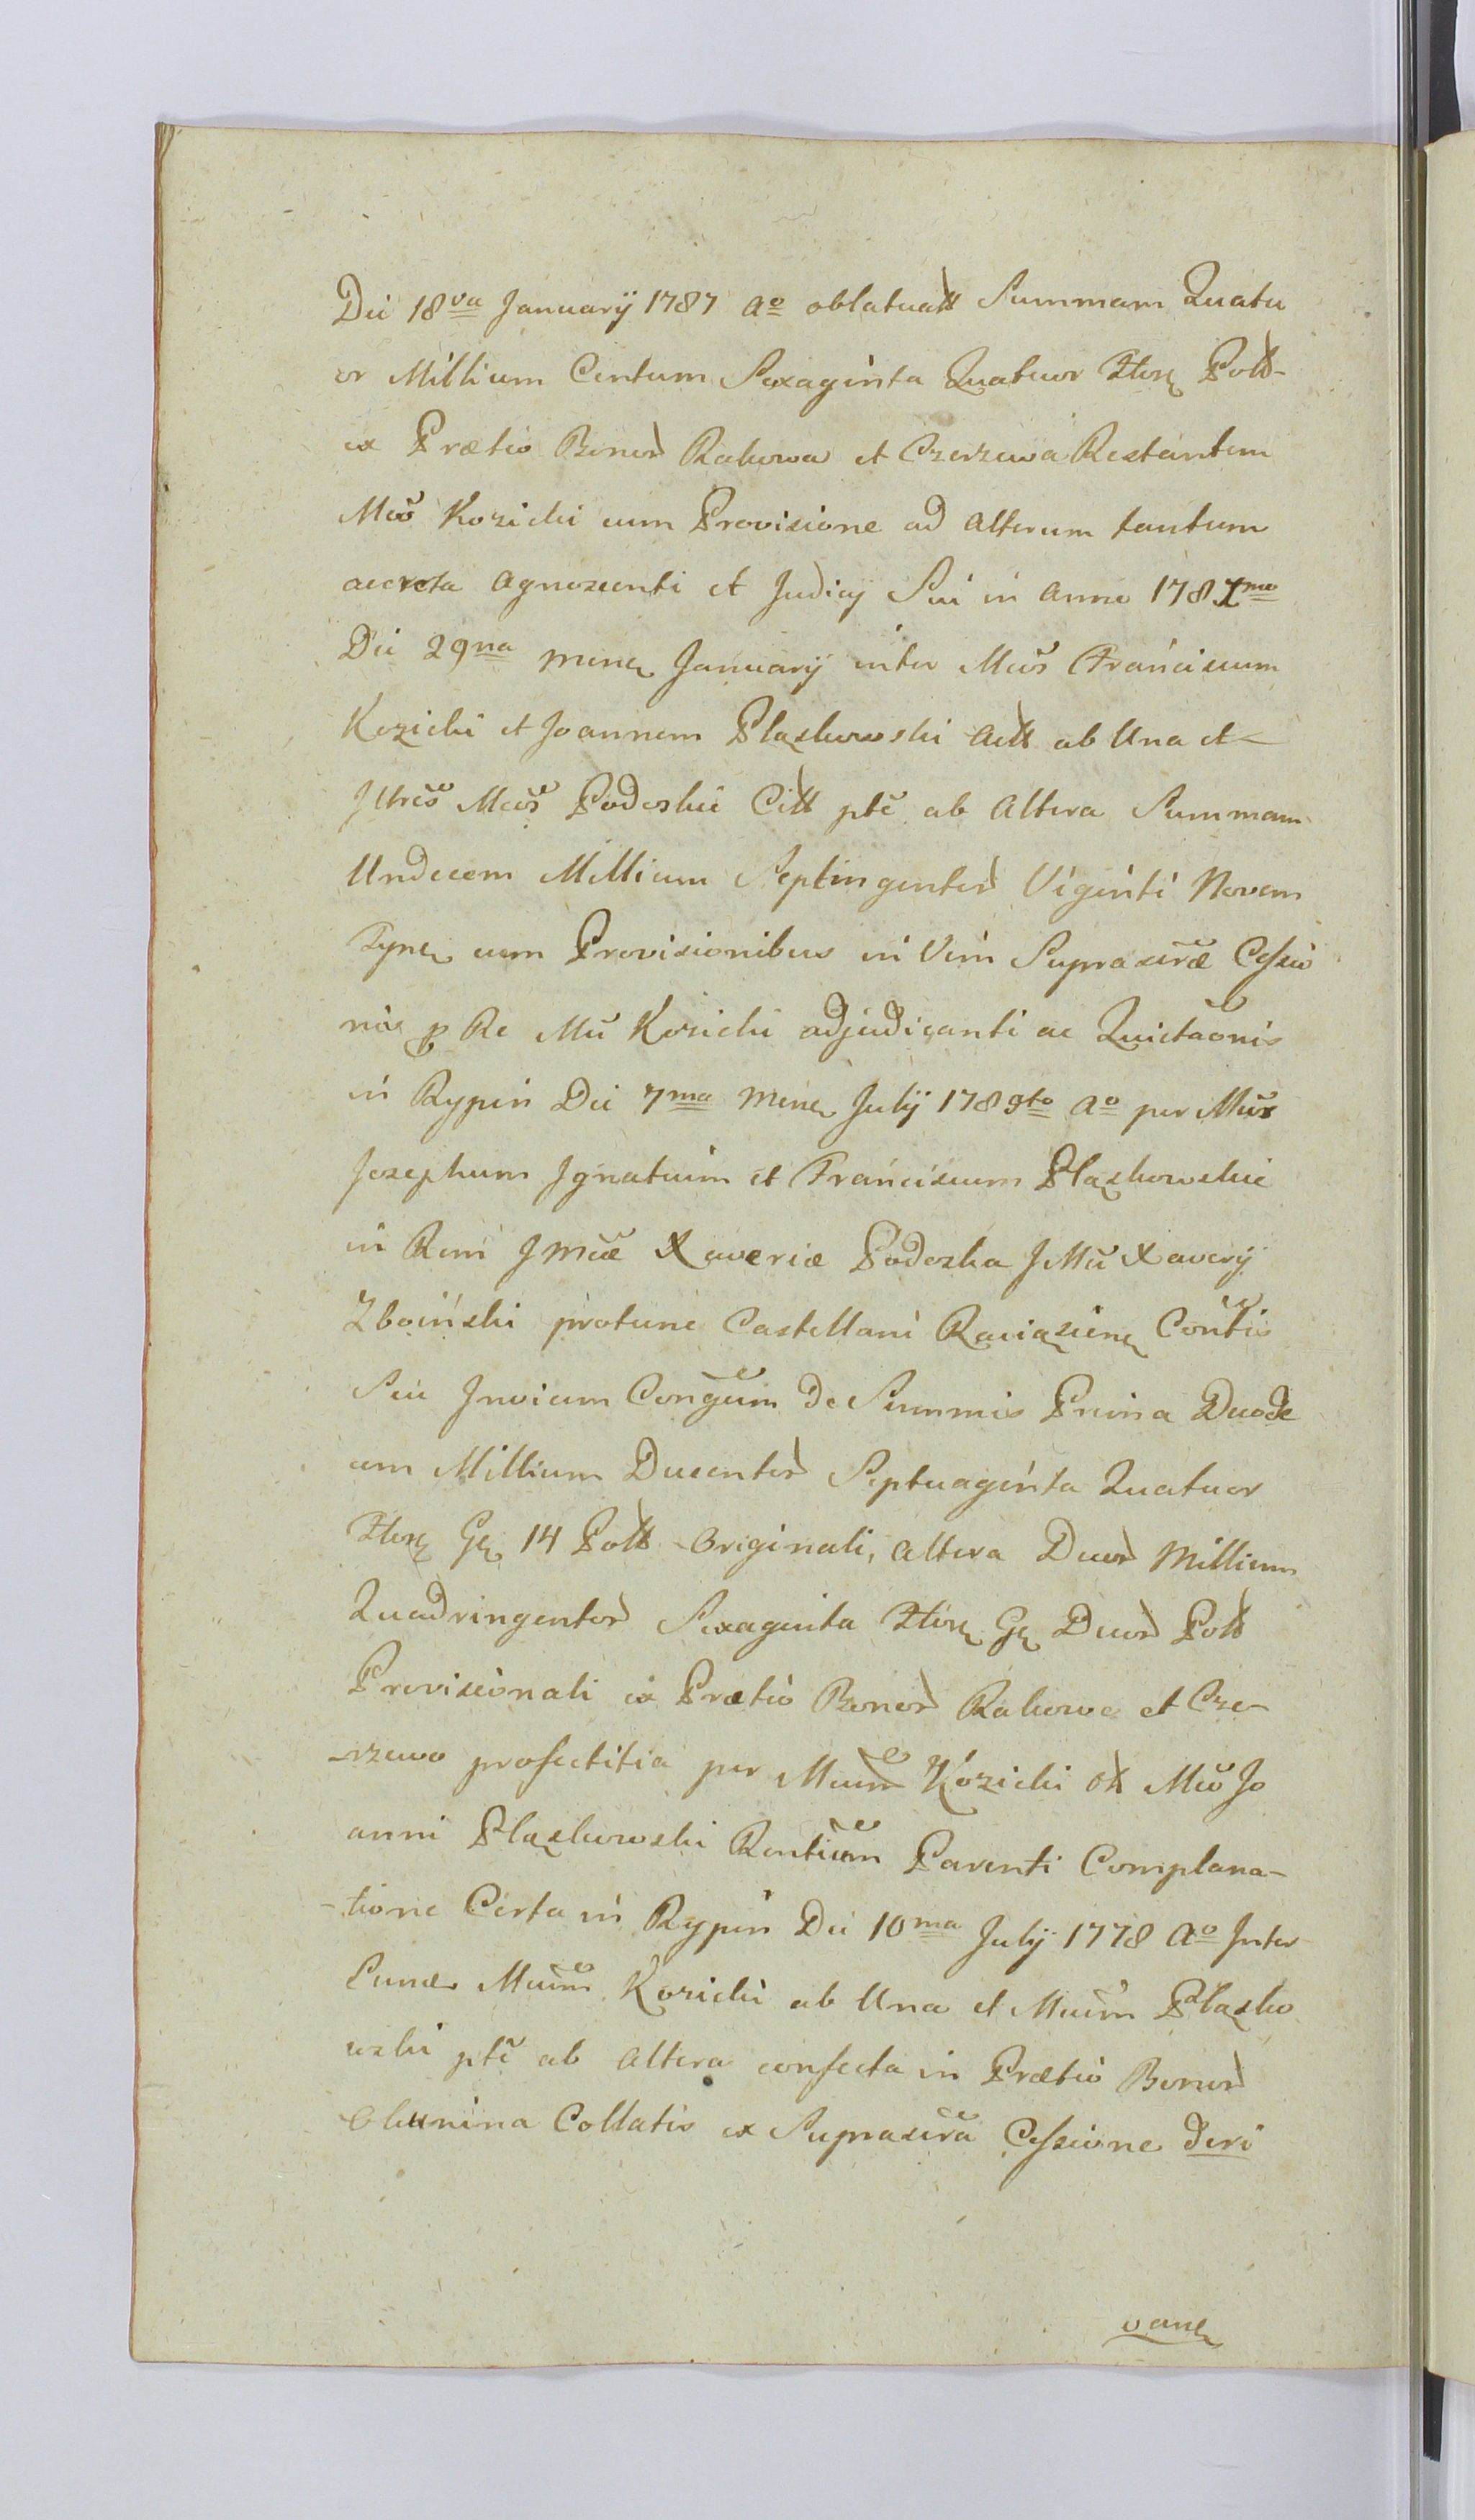 Die 18va Januarÿ 1787 Ao oblatuatt Summam Quatu
or Millium Centum Sexaginta Quatuor Flore Poltt
ex Prætio Bonor Rakowa et Czerzewa Restantem
Mco Kozicki cum Provisione ad Alterum tantum
accreta Agnoscenti et Judicÿ Sui in Anno 1787mo
Die 29na Mene Januarÿ inter Mcos Franciscum
Kozicki et Joannem Płaskowski Actt ab Una et
Jllres Mcos Podoskie Citt pte ab Altera Summam
Undecem Millium Septingentor Viginti Novem
Tyne cum Provisionibus in Vim Suprascræ Cessio
nis p Re Mci Kozicki adjudicanti ac Quictaonis
in Rypin Die 7ma Mene Julÿ 1789to Ao per Mcos
Josephum Jgnatium et Franciscum Płaskowskie
in Rem J Mcæ Xaveriæ Podoska J Mci Xaverÿ
Zboiński protunc Castellani Raciążiene Contis
Sui Jnvicem Congum de Summis Prima Duode
cim Millium Ducentor Septuaginta Quatuor
Flore Ge 14 Poltt Originali, altera Duor Millium
Quadringentor Sexaginta Flore Ge Duor Poltt
Provisionali ex Prætio Bonor Rakowa et Cze-
-rzewo profectitia per Mcum Kozicki ott Mco Jo
anni Płaskowski Rentium Parenti Complana-
-tione Certa in Rypin Die 10ma Julÿ 1778 Ao Jnter
Eund Mcum Kozicki ab Una et Mcum Płasko
wski pte ab Altera confecta in Prætio Bonor
Okunina Collatis ex Suprascra Cessione deri
vane